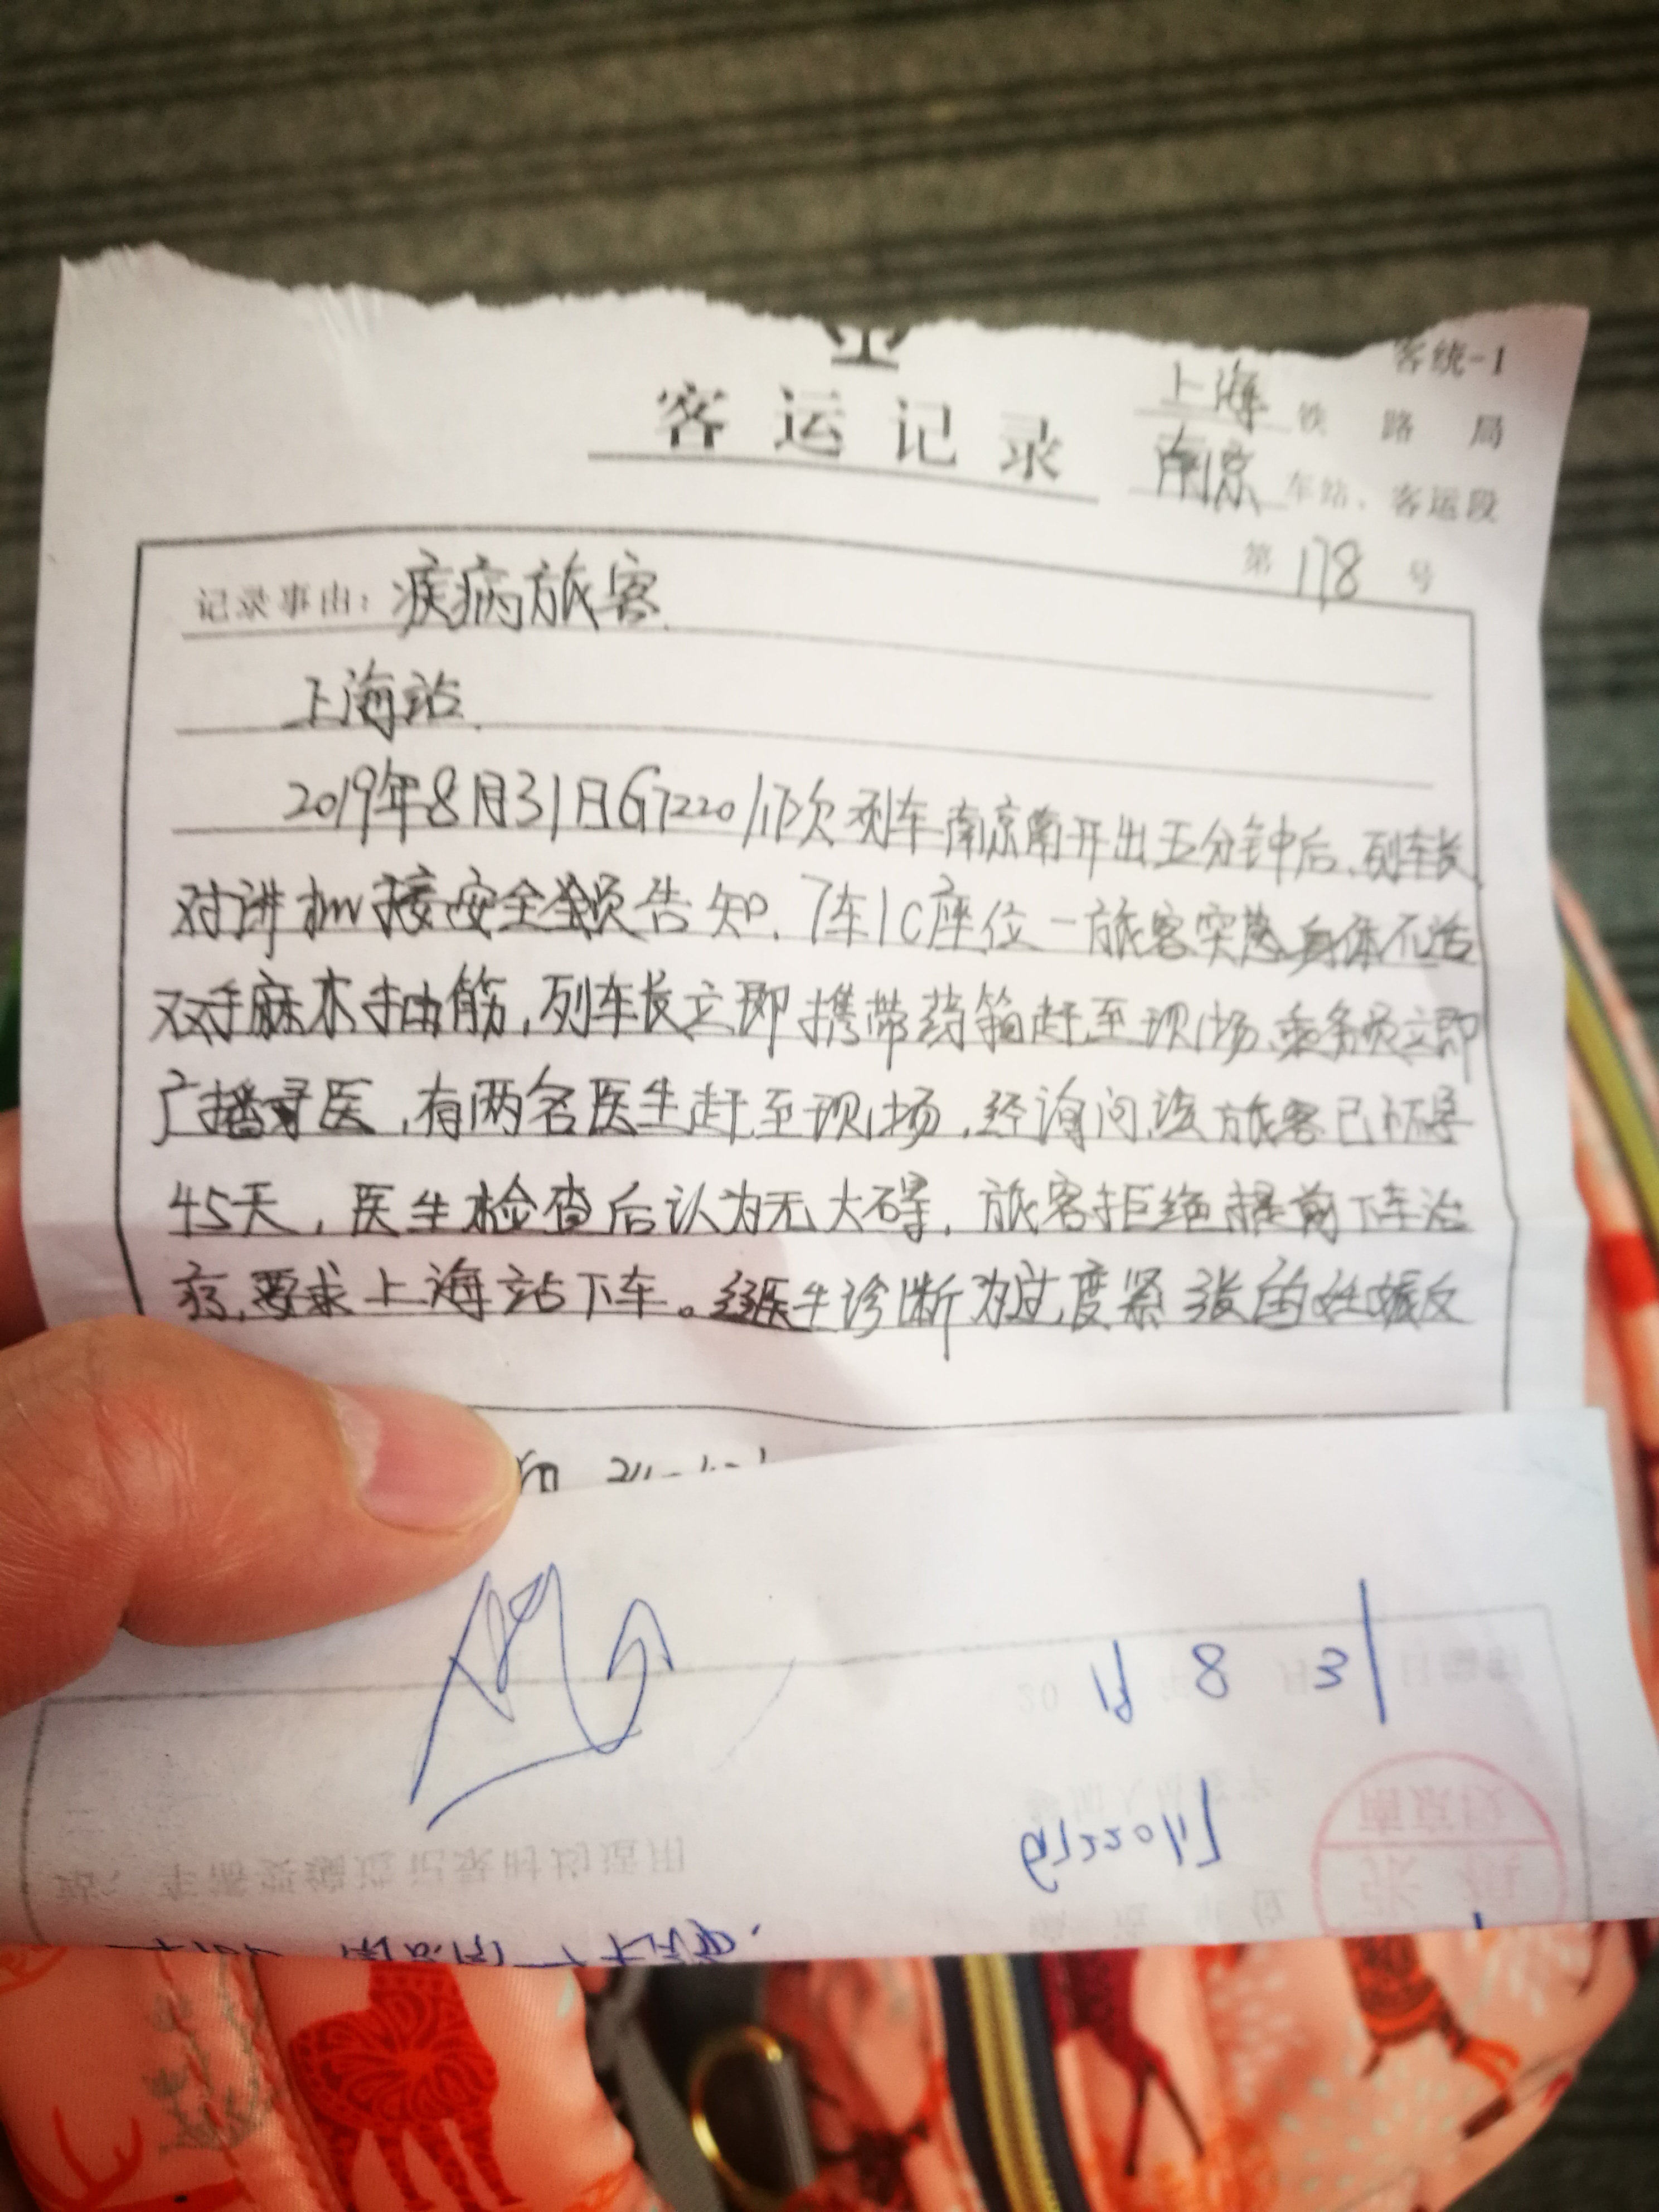 客统-1
上海 铁路局
客运记录
南京 车站、客运段
第 178 号
记录事由：疾病旅客
上海站
2019年8月31日G7220/17次列车南京南开出五分钟后，列车长
对讲机接安全员告知，7车1C座位一旅客突感身体不适
双手麻木抽筋，列车长立即携带药箱赶至现场，乘务员立即
广播寻医，有两名医生赶至现场，经询问，该旅客已怀孕
45天，医生检查后认为无大碍，旅客拒绝提前下车治
疗，要求上海站下车。经医生诊断为过度紧张的妊娠反
20 19 年 8 月 31 日编制
G7220/17
南京段
张